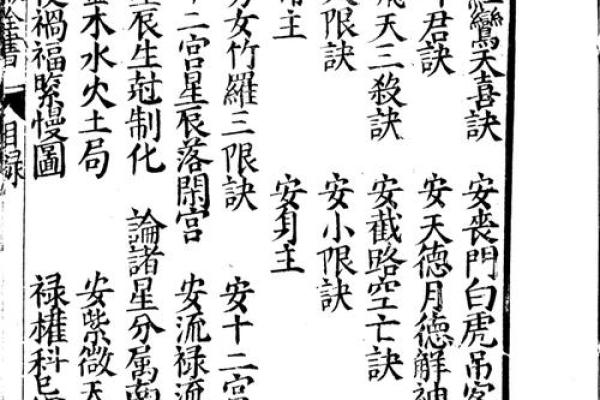 鸞天喜訣 安喪門白虎吊客
君訣 安天德月德解神
天三殺訣 安截路空亡訣
限訣 安小限訣
主 安身主
女竹羅三限訣 安十二宮
二宮星辰落閑宮 安流禄流
辰生尅制化 論諸星分属南
木水火土局 安紫微天
禍福緊慢圖 禄權科
書 目録